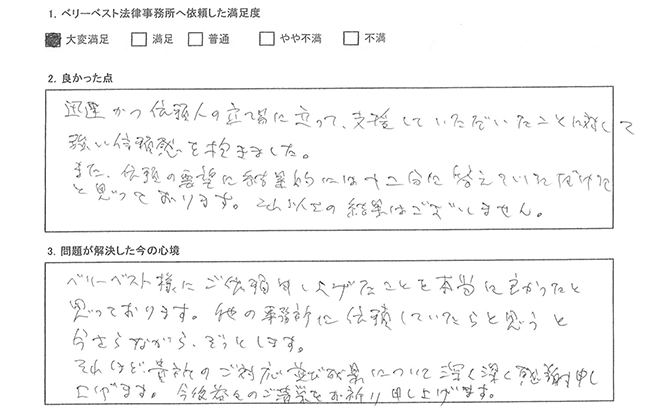 1. ベリーベスト法律事務所へ依頼した満足度
大変満足 満足 普通 やや不満 不満
2. 良かった点
迅速かつ依頼人の立場に立って、支援していただいたことに対して
強い信頼感を抱きました。
また、依頼の要望に結果的には十二分に答えていただけた
と思っております。これ以上の結果はございません。
3. 問題が解決した今の心境
ベリーベスト様にご依頼申し上げたことを本当に良かったと
思っております。他の事務所に依頼していたらと思うと
今さらながら、ぞっとします。
それほど貴所のご対応並び成果について深く深く感謝申し
上げます。今後益々のご清栄をお祈り申し上げます。